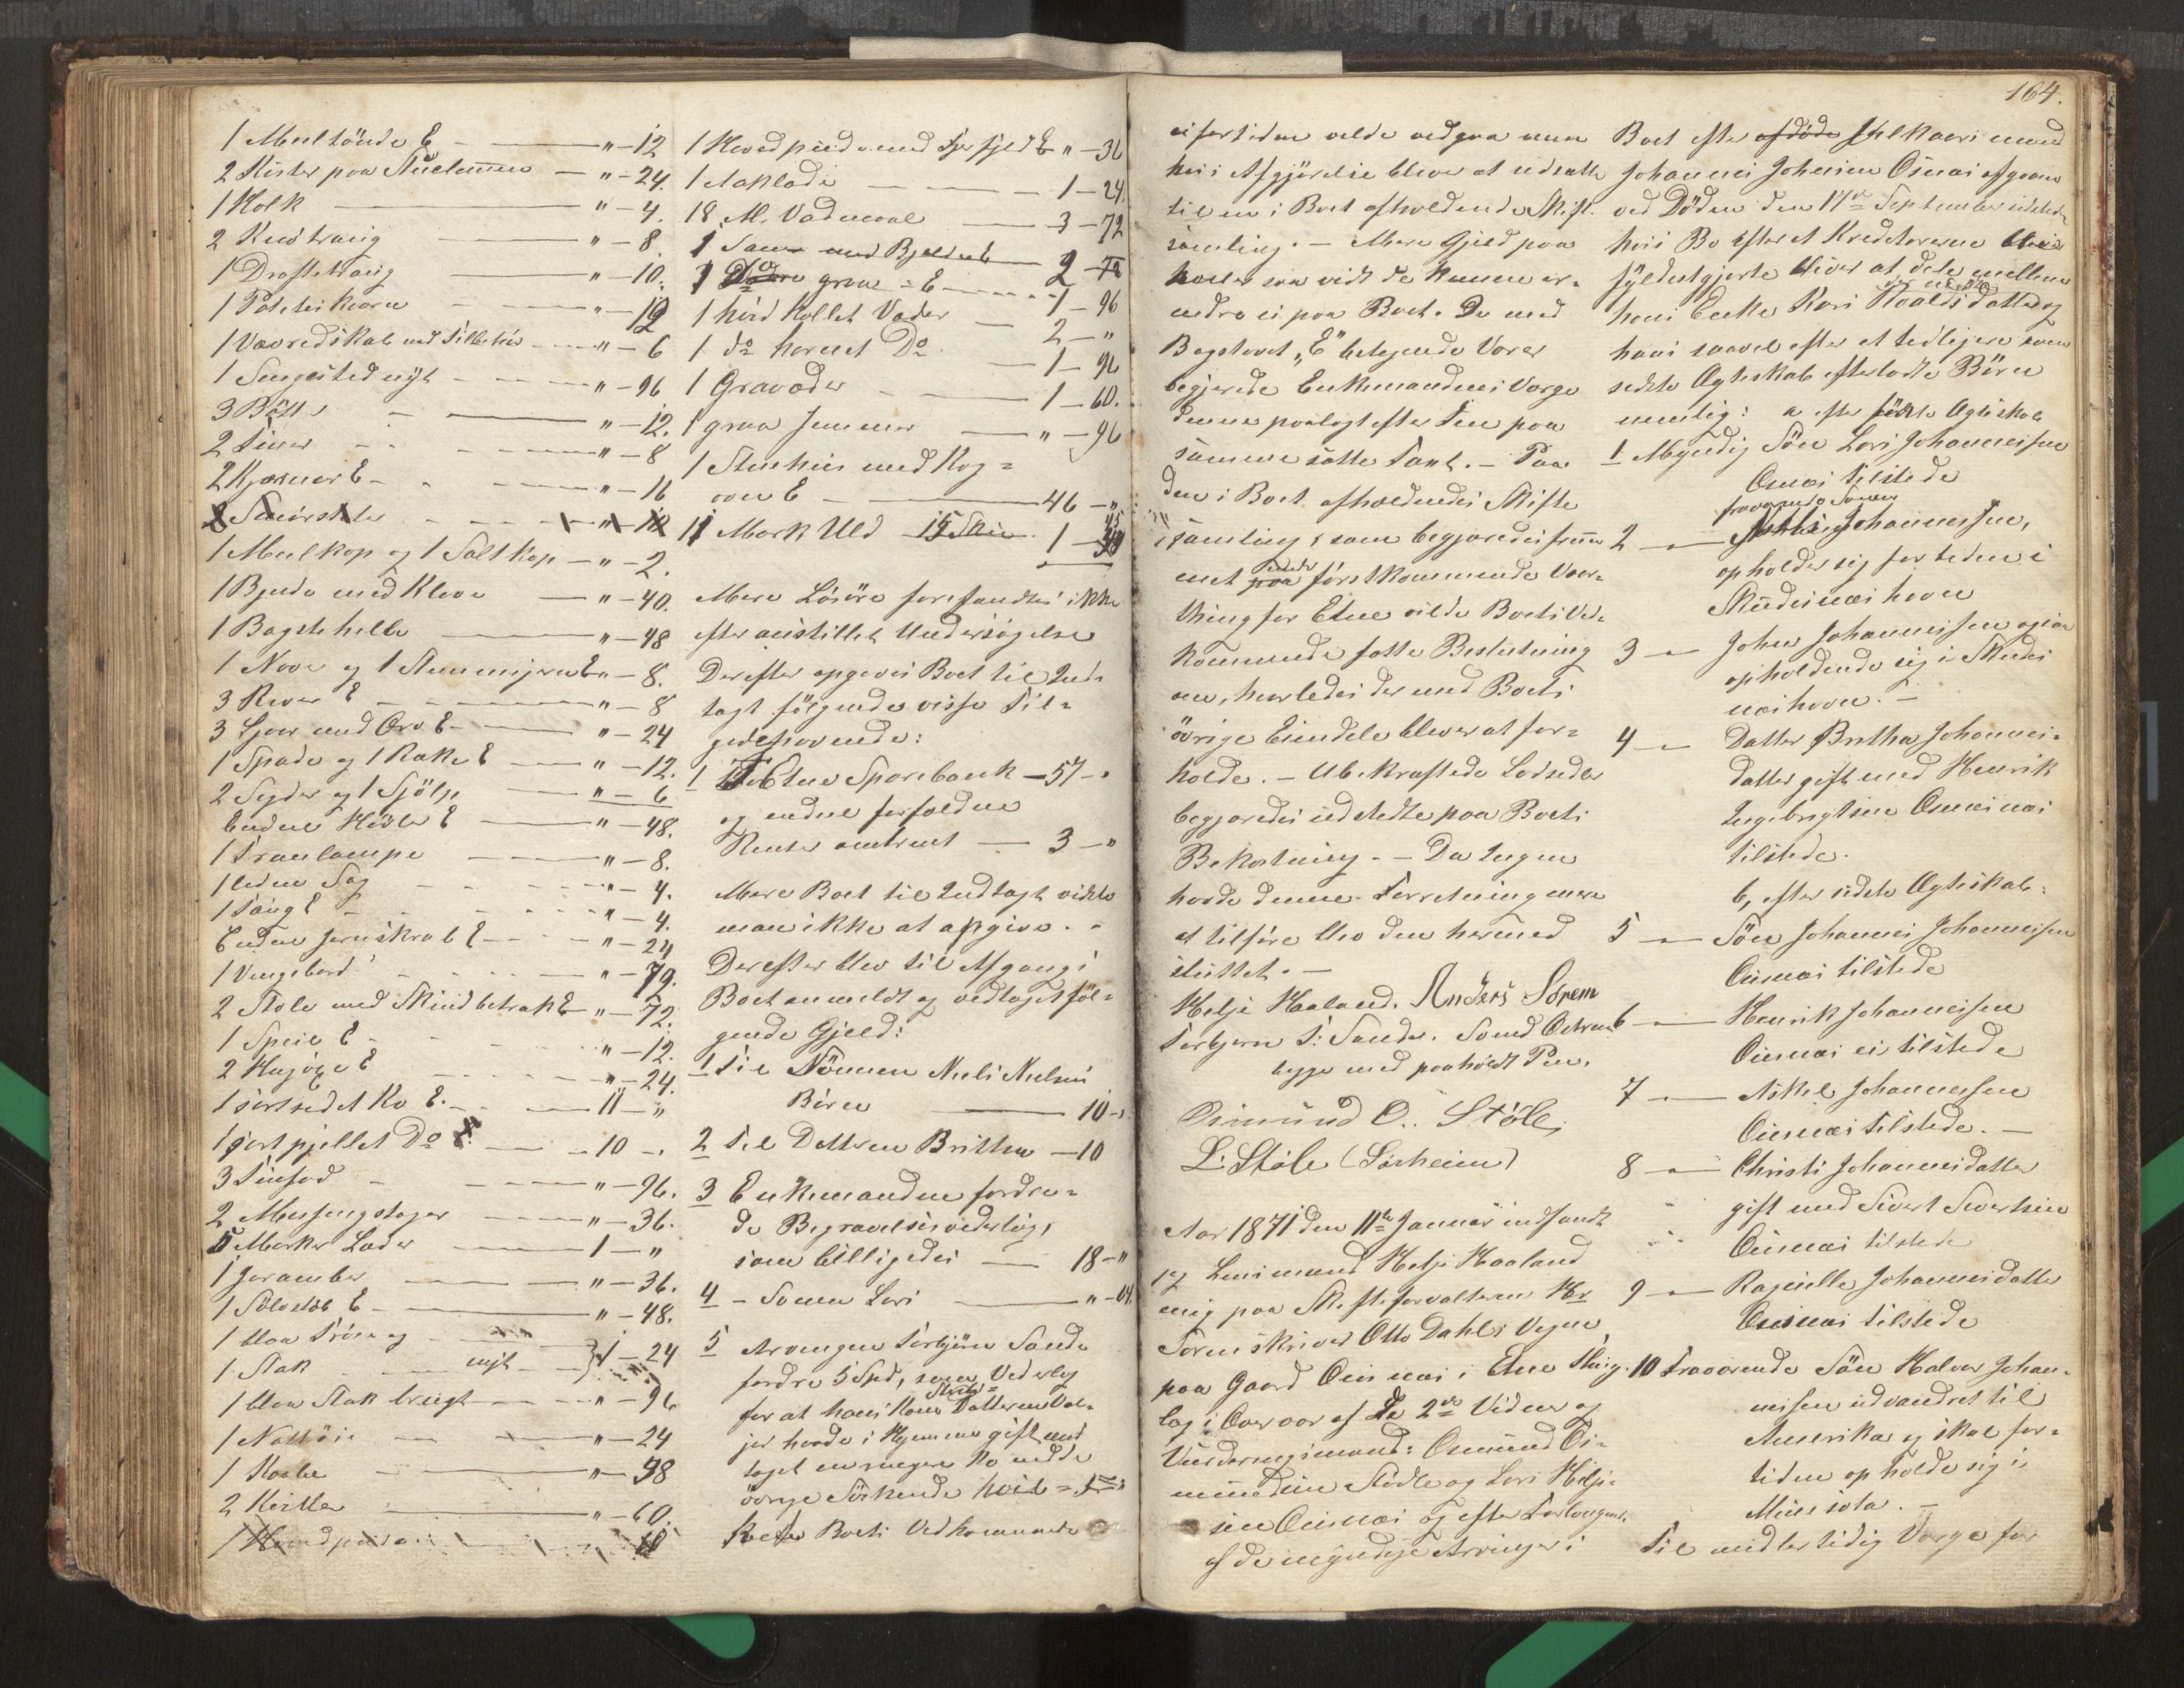 1 Meeltönde E — " — 12
2 Kister paa — " — 24.
1 Kolk — " — 4.
2 — " — 8.
1 Drøftetraug — " — 10.
1 — " — 12
1 Vævredskab med Tilbehör — " — 6
1 Sengested nyt — " — 96
3 Bötter — " — 12.
2 Tiner — " — 8
2 Kjærner E — " — 16
1 Meelkop og 1 Saltkop — " — 2.
1 Bjude med Kleve — " — 40.
1 Bagstehelle — " — 48
1 Nove og 1 Stemmejern E " — 8.
3 River E — " — 8
3 Ljaar med Orv E — " — 24
1 Spade og 1 Rake E — " — 12.
2 og 1 — " — 6
Endeel E — " — 48.
1 Tranlampe — " — 8.
1 liden Sag — " — 4.
1 Tang E — " — 4.
Endeel Jernskrab E — " — 24
1 Vengebord — " — 72.
2 Stole med Skindbetræk E — " — 72.
1 Speil E — " — 12.
2 E — " — 24.
1 sortsidet Ko E. — 11 — "
1 sortpjellet Do E. — 10 — "
3 Tinfad — " — 96.
2 Messingstager — " — 36.
5 Marker Læder — 1 — "
1 — " — 36.
1 Sölvstøb E — " — 48.
1 blaa Tröie og
1 Stak nyt } 1 — 24
1 blaa Stak brugt — " — 96
1 Nattröie — " — 24
1 Kaabe — " — 48
2 Kister — " — 60.
1 Hovedpude
1 Hovedpude med E " — 36
1 Aaklæde — 1 — 24.
18 Al. Vadmaal — 3 — 72
1 Sau med Bjelde E 2 — 72
1 Do graa = E — 1 — 96
1 hvid kollet Væder — 2 — "
1 do hornet Do — 1 — 96
1 Gravæder — 1 — 60.
1 graa Jemmer — " — 96
1 Stuehuus med Kog=
ovn E — 46 — "
11 Mark Uld 15 Skill. 1 — 45
Mere Lösöre forefandtes ikke
efter anstillet Undersögelse
Derefter opgaves Boet til Ind-
tægt fölgende visse Til-
godehavende:
1 I Etne Sparebank — 57 — "
og endeel forfaldne
Renter omtrent — 3 — "
Mere Boet til Indtægt vidste
man ikke at opgive. —
Derefter blev til Afgang i
Boet anmeldt og vedtaget föl-
gende Gjeld:
1 Til Sönnen Niels Nielsens
Börn — 10 — "
2 Til Datteren Britha — 10
3 Enkemanden fordre-
de Begravelsesvederlag,
som billigedes — 18 — "
4 – Sönnen Lars — " — 64.
5 Arvingen Torbjörn Sande
fordre 5 Spd, som Vederlag
for at hans Kone Datteren Val-
jer havde i Hjemme gift med-
taget en ringere Ko end de
övrige Södskende
Boets Vedkommende
164.
ei fortiden vilde vedgaa men
hvis Afgjörelse bliver at udsætte
til en i Boet afholdende Skift-
samling. — Mere Gjeld paa
hviler saavidt de kunne er-
indre ei paa Boet. De med
Bogstavet „E" betegnede Varer
begjærede Enkemandens Værge
denne paalagt efter den paa
samme satte Taxt. — Paa
den i Boet afholdendes Skifte
samling, som begjæredes frem-
met ved förstkommende Vaar-
thing for Etne vilde Boets Ved-
kommende fatte Beslutning
om, hvorledes der med Boets
övrige Eiendele bliver at for-
holde. — Ubekræftede Lodsedler
begjæredes udstedte paa Boets
Bekostning. — Da Ingen
havde denne Forretning mere
at tilföre blev den hermed
sluttet. —
Helje Haaland. Anders Sørem
Torbjørn T: Sande. Svend Østrem-
bygge med paaholdt Pen.
Osmund O. Stöle
L: Støle (Sørheim)
Aar 1871 den 11te Januar indfandt
jeg Lensmand Helje Haaland
mig paa Skifteforvalteren Hr
Sorenskriver Otto Dahls Vegne
paa Gaard Osnæs i Etne Thing-
lag i Overvær af de 2de Vidner og
Vurderingsmænd: Osmund Os-
mundsen Stödle og Lars Helje-
sen Osnæs og efter Forlangende
af de myndige Arvinger i
Boet efter Selveiermand
Johannes Johnsen Osnæs afgaaen
ved Döden den 17de September sidstl.
hvis Bo efterat Kreditorerne ere
fyldestgjorte bliver at dele mellem
hans Enke Kari Roaldsdatter og
hans saavel efter et tidligere som
sidste Ægteskab efterladte Börn
nemlig: a efter förste Ægteskab
1 Myndig Sön Lars Johannessen
Osnæs tilstede
2 — fraværende Sönnen
Johannessen,
opholder sig for tiden i
Skudesnæshavn
3 — John Johannessen ogsaa
opholdende sig i Skudes-
næshavn. —
4 — Datter Britha Johannes-
datter gift med Henrik
Ingebrigtsen Osnæs
tilstede.
b, efter sidste Ægteskab:
5 — Sön Johannes Johannessen
Osnæs tilstede
6 — Henrik Johannessen
Osnæs ei tilstede
7 — Askel Johannessen
Osnæs tilstede. —
8 — Christi Johannesdatter
gift med Sivert Sivertsen
Osnæs tilstede
9 — Ragnille Johannesdatter
Osnæs tilstede
10 Fraværende Sön Halvor Johan-
nessen udvandret til
Amerika og skal for-
tiden opholde sig i
Minisota. —
Til midlertidig Værge for